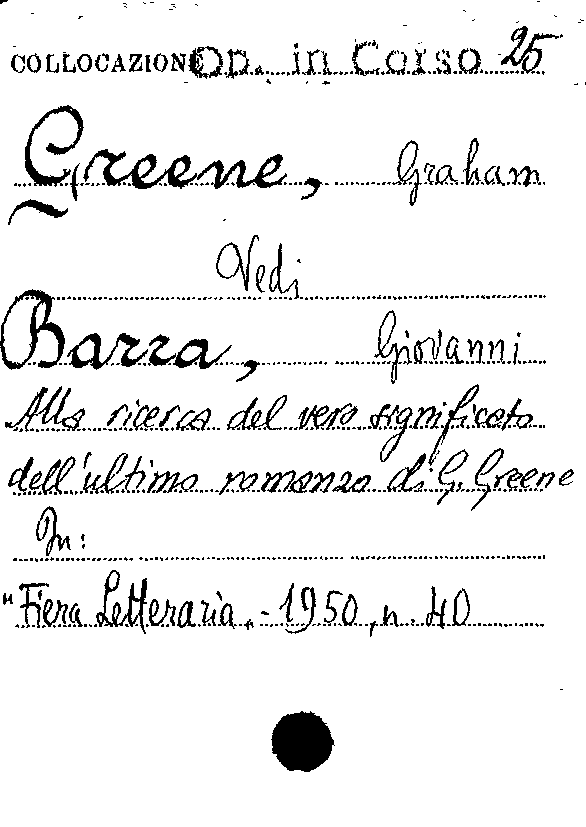 COLLOCAZIONE Op. in Corso 25
Greene, Graham
Vedi
Barra, Giovanni
Alla ricerca del vero significato
dell'ultimo romanzo di G. Greene
In:
"Fiera Letteraria" - 1950, n. 40